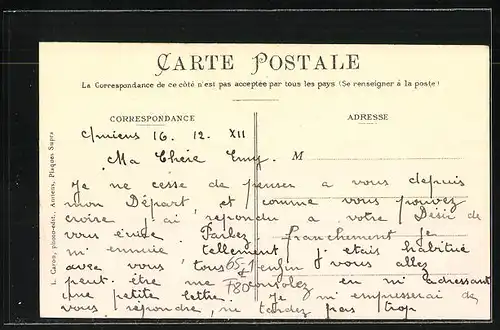 CARTE POSTALE
La Correspondance de ce côté n'est pas acceptée par tous les pays (Se renseigner à la poste)
CORRESPONDANCE
ADRESSE
Amiens 16. 12. XII
Ma Chere Emy. M
Je ne cesse de penser a vous depuis
mon Départ, et comme vous pouvez
croire j'ai repondu a votre Désir de
vous ecrire. Parlez franchement je
mi ennuie tellement j etais habitué
avec vous tous enfin vous allez
peut être me consolez en mi adressant
une petite lettre. Je mi empresserai de
vous répondre, ne tardez pas trop
65-1
780
L. Caron, photo-édit., Amiens, Plaques Supra